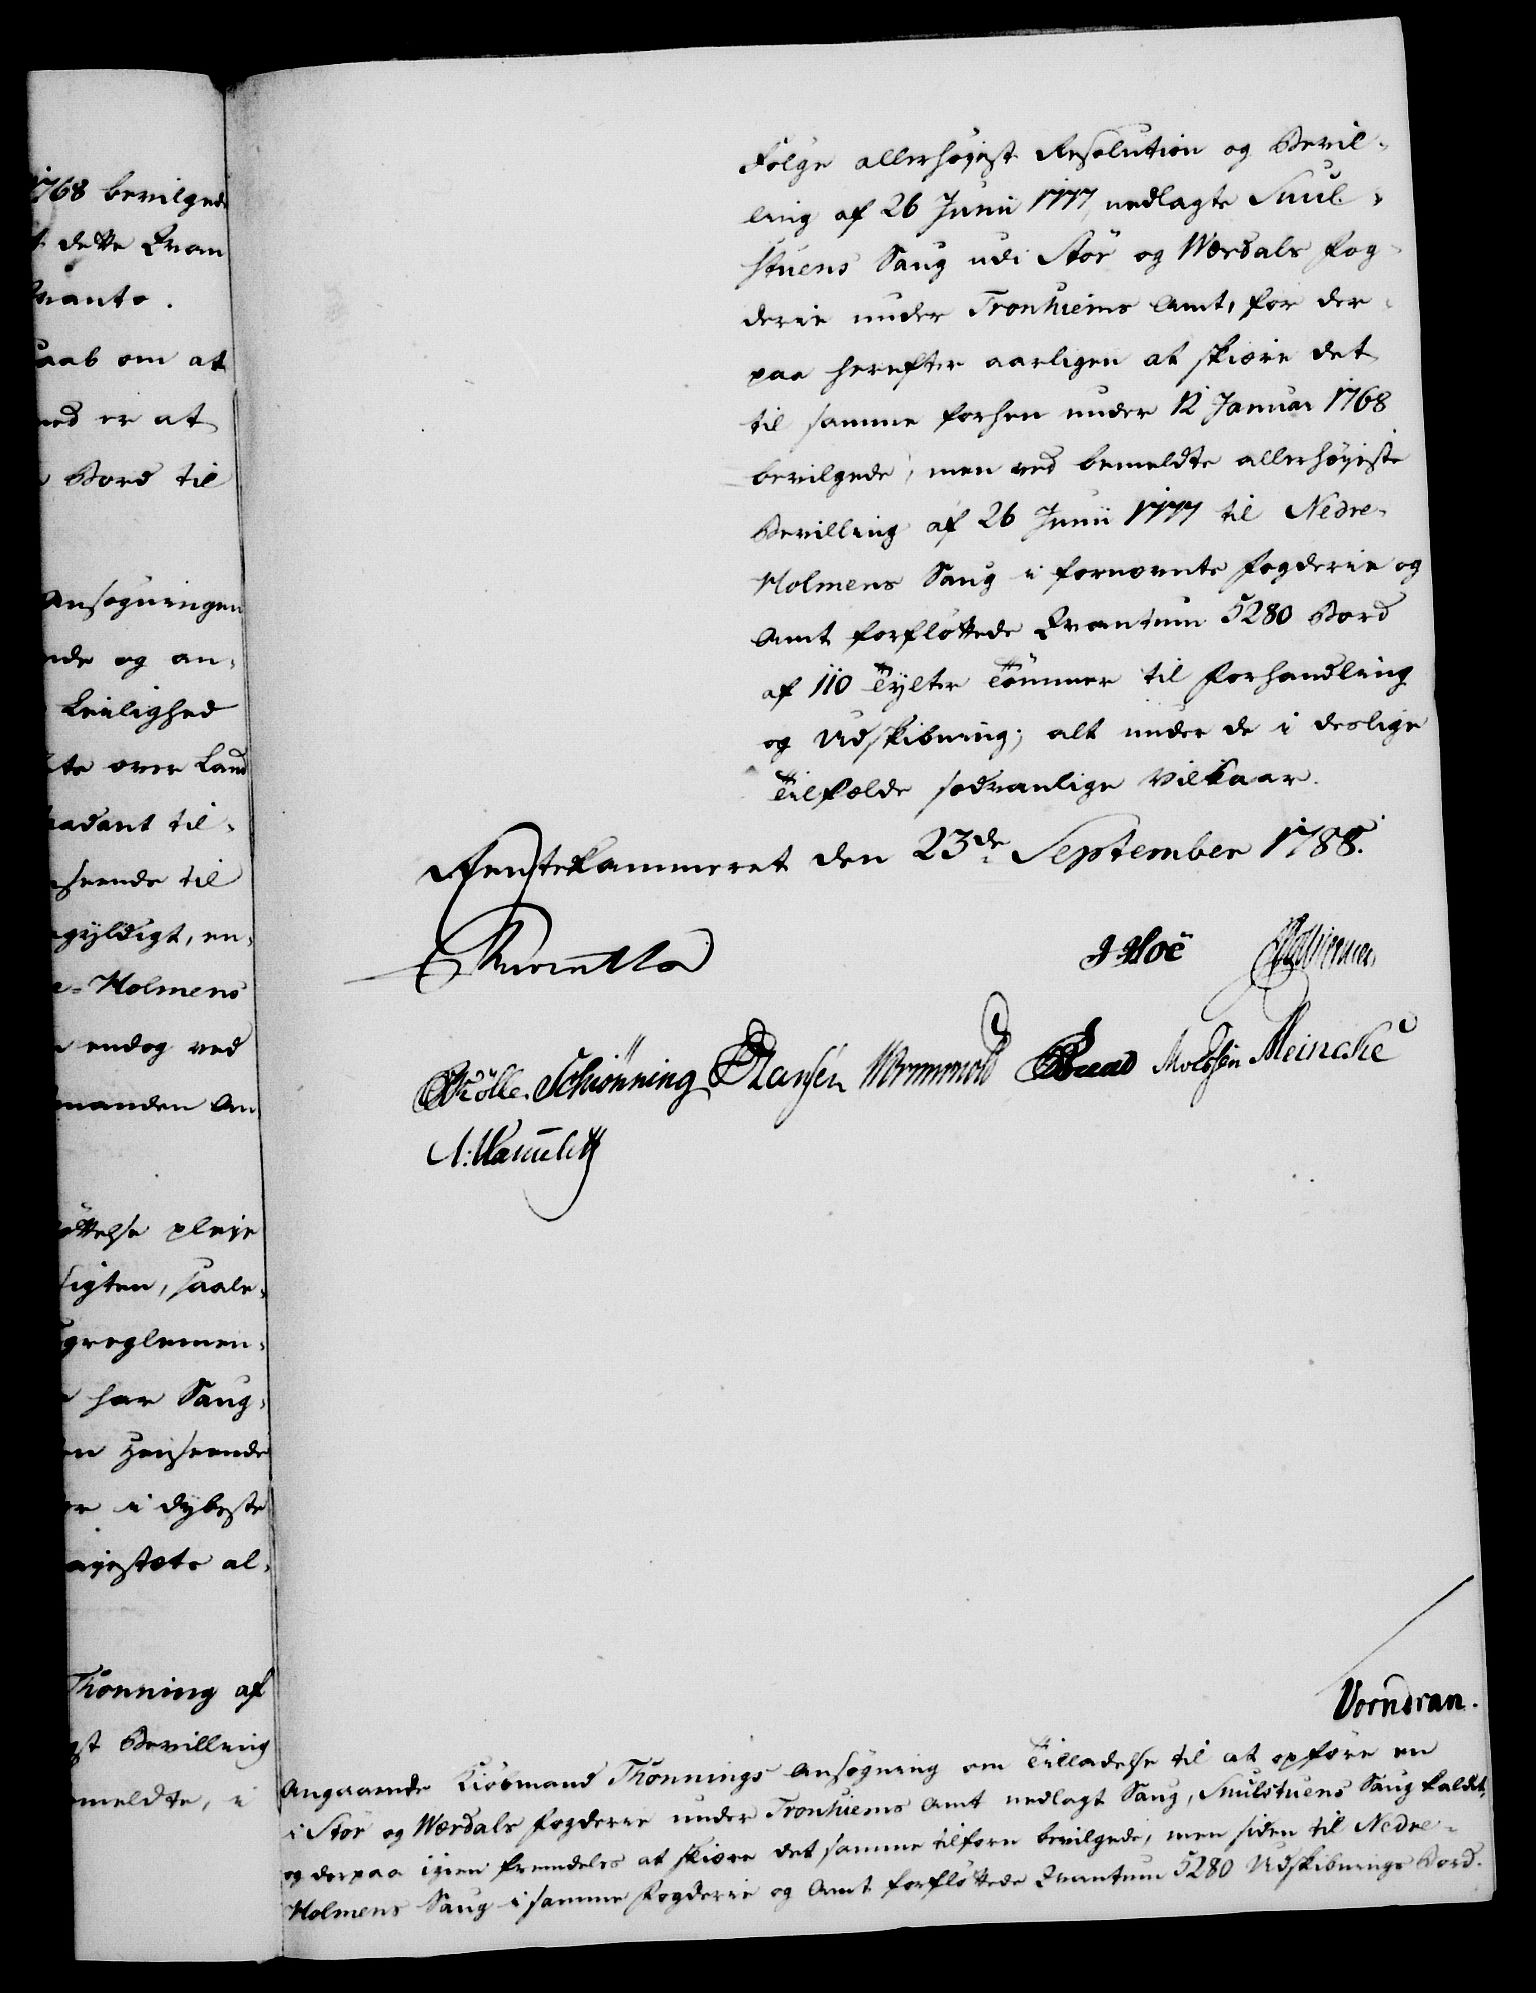 1768 bevilgede
dette Qvan
qvanto.
saab om at
med er at
Bord til
Ansøgningen
nde og an-
Leilighed
te over Land
saadant til-
seende til
gyldigt, en-
e-Holmens
endog ved
manden An
øttelse pleje
sigten, saale-
greglemen-
har Saug-
en Henseende
er i dybeste
ajestæts al-
Thonning af
gst Bevilling
meldte, i
Følge allerhøjest Resolution og Bevil-
ling af 26 Junii 1777 nedlagte Snul-
stuens Saug udi Stör og Wærdals Fog-
derie under Tronhiems Amt, for der-
paa herefter aarligen at skiære det
til samme forhen under 12 Januar 1768
bevilgede, men ved bemeldte allerhøjeste
Bevilling af 26 Junii 1777 til Nedre-
Holmens Saug i fornævnte Fogderie og
Amt forfløttede Qvantum 5280 Bord
af 110 Tylter Tømmer til Forhandling
og Udskibning; alt under de i deslige
Tilfælde sædvanlige Vilkaar.
Rentekammeret den 23de September 1788.
JHoë
Schiønning Hansen Wormskiold Molssen Meincke
Vorndran.
Angaaende Kiöbmand Thonnings Ansøgning om Tilladelse til at opføre en
i Stör og Wærdals Fogderie under Tronhiems Amt nedlagt Saug, Snulstuens Saug kaldet,
og derpaa igien fremdeles at skiære det samme tilforn bevilgede, men siden til Nedre-
Holmens Saug i samme Fogderie og Amt forfløttede Qvantum 5280 Udskibnings Bord.